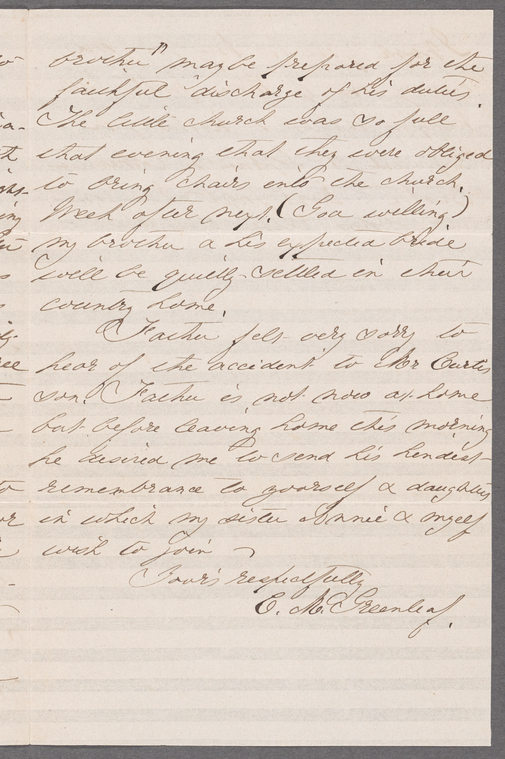 brother" may be prepared for the
faithful discharge of his duties.
The little church was so full
that evening that they were obliged
to bring chairs into the church.
Week after next, (God willing)
my brother & his expected bride
will be quietly settled in their
country home.
Father felt very sorry to
hear of the accident to Mr Curtis
son. Father is not now at home
but before leaving home this morning
he desired me to send his kindest
remembrance to yourself & daughters
in which my sister Annie & myself
wish to join
Your's respectfully
C. M. Greenleaf.